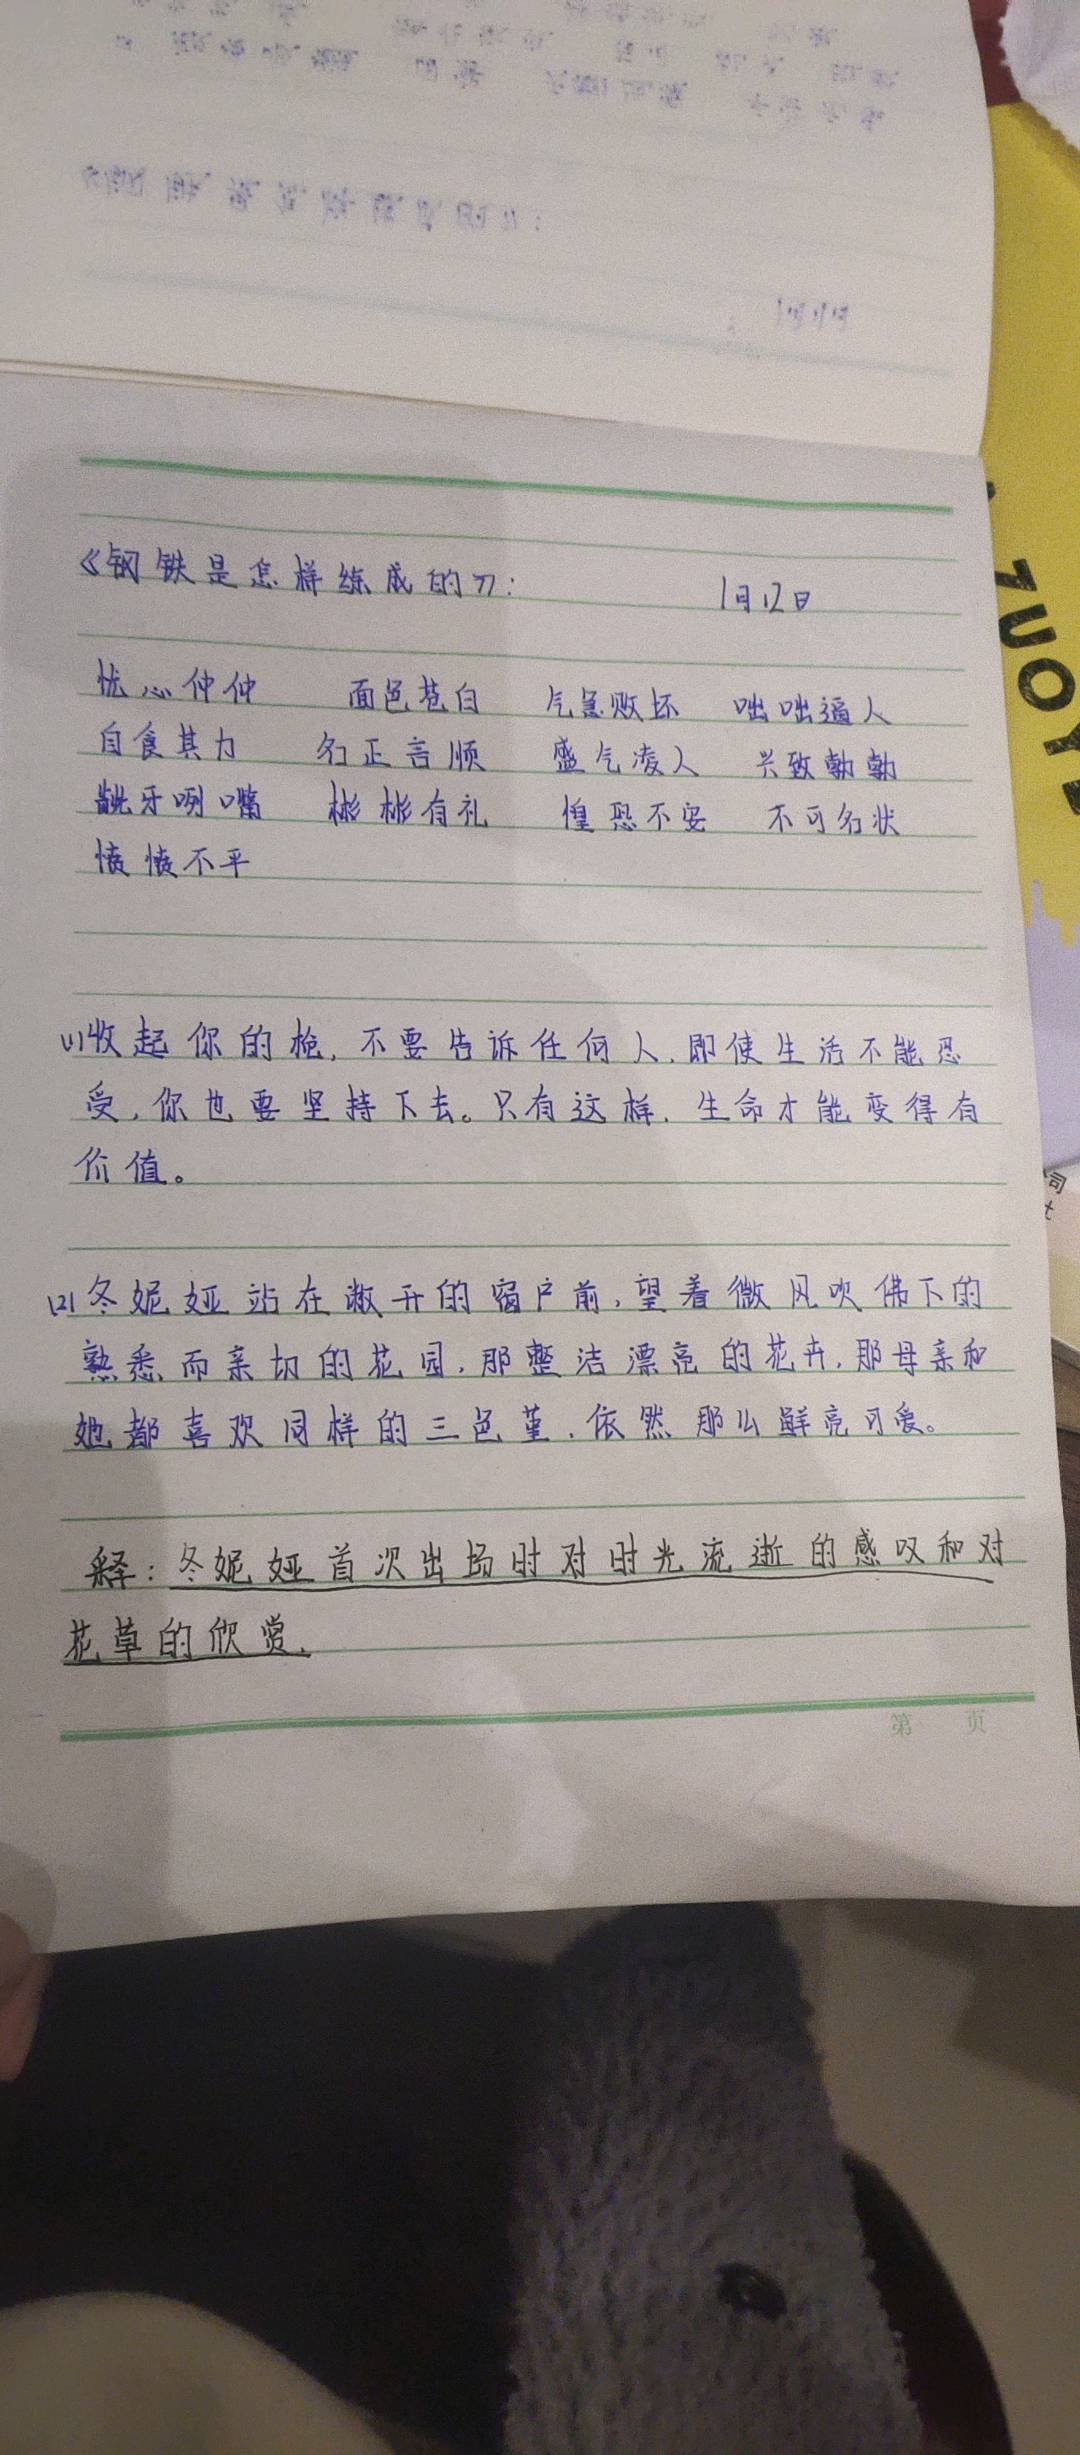 《钢铁是怎样练成的》:
1月12日
忧心仲仲 面色苍白 气急败坏 咄咄逼人
自食其力 名正言顺 盛气凌人 兴致勃勃
龇牙咧嘴 彬彬有礼 惶恐不安 不可名状
愤愤不平
(1)收起你的枪,不要告诉任何人,即使生活不能忍
受,你也要坚持下去。只有这样,生命才能变得有
价值。
(2)冬妮娅站在敞开的窗户前,望着微风吹佛下的
熟悉而亲切的花园,那整洁漂亮的花卉,那母亲和
她都喜欢同样的三色堇,依然那么鲜亮可爱。
释:冬妮娅首次出场时对时光流逝的感叹和对
花草的欣赏.
第 页
ZUOYE
司